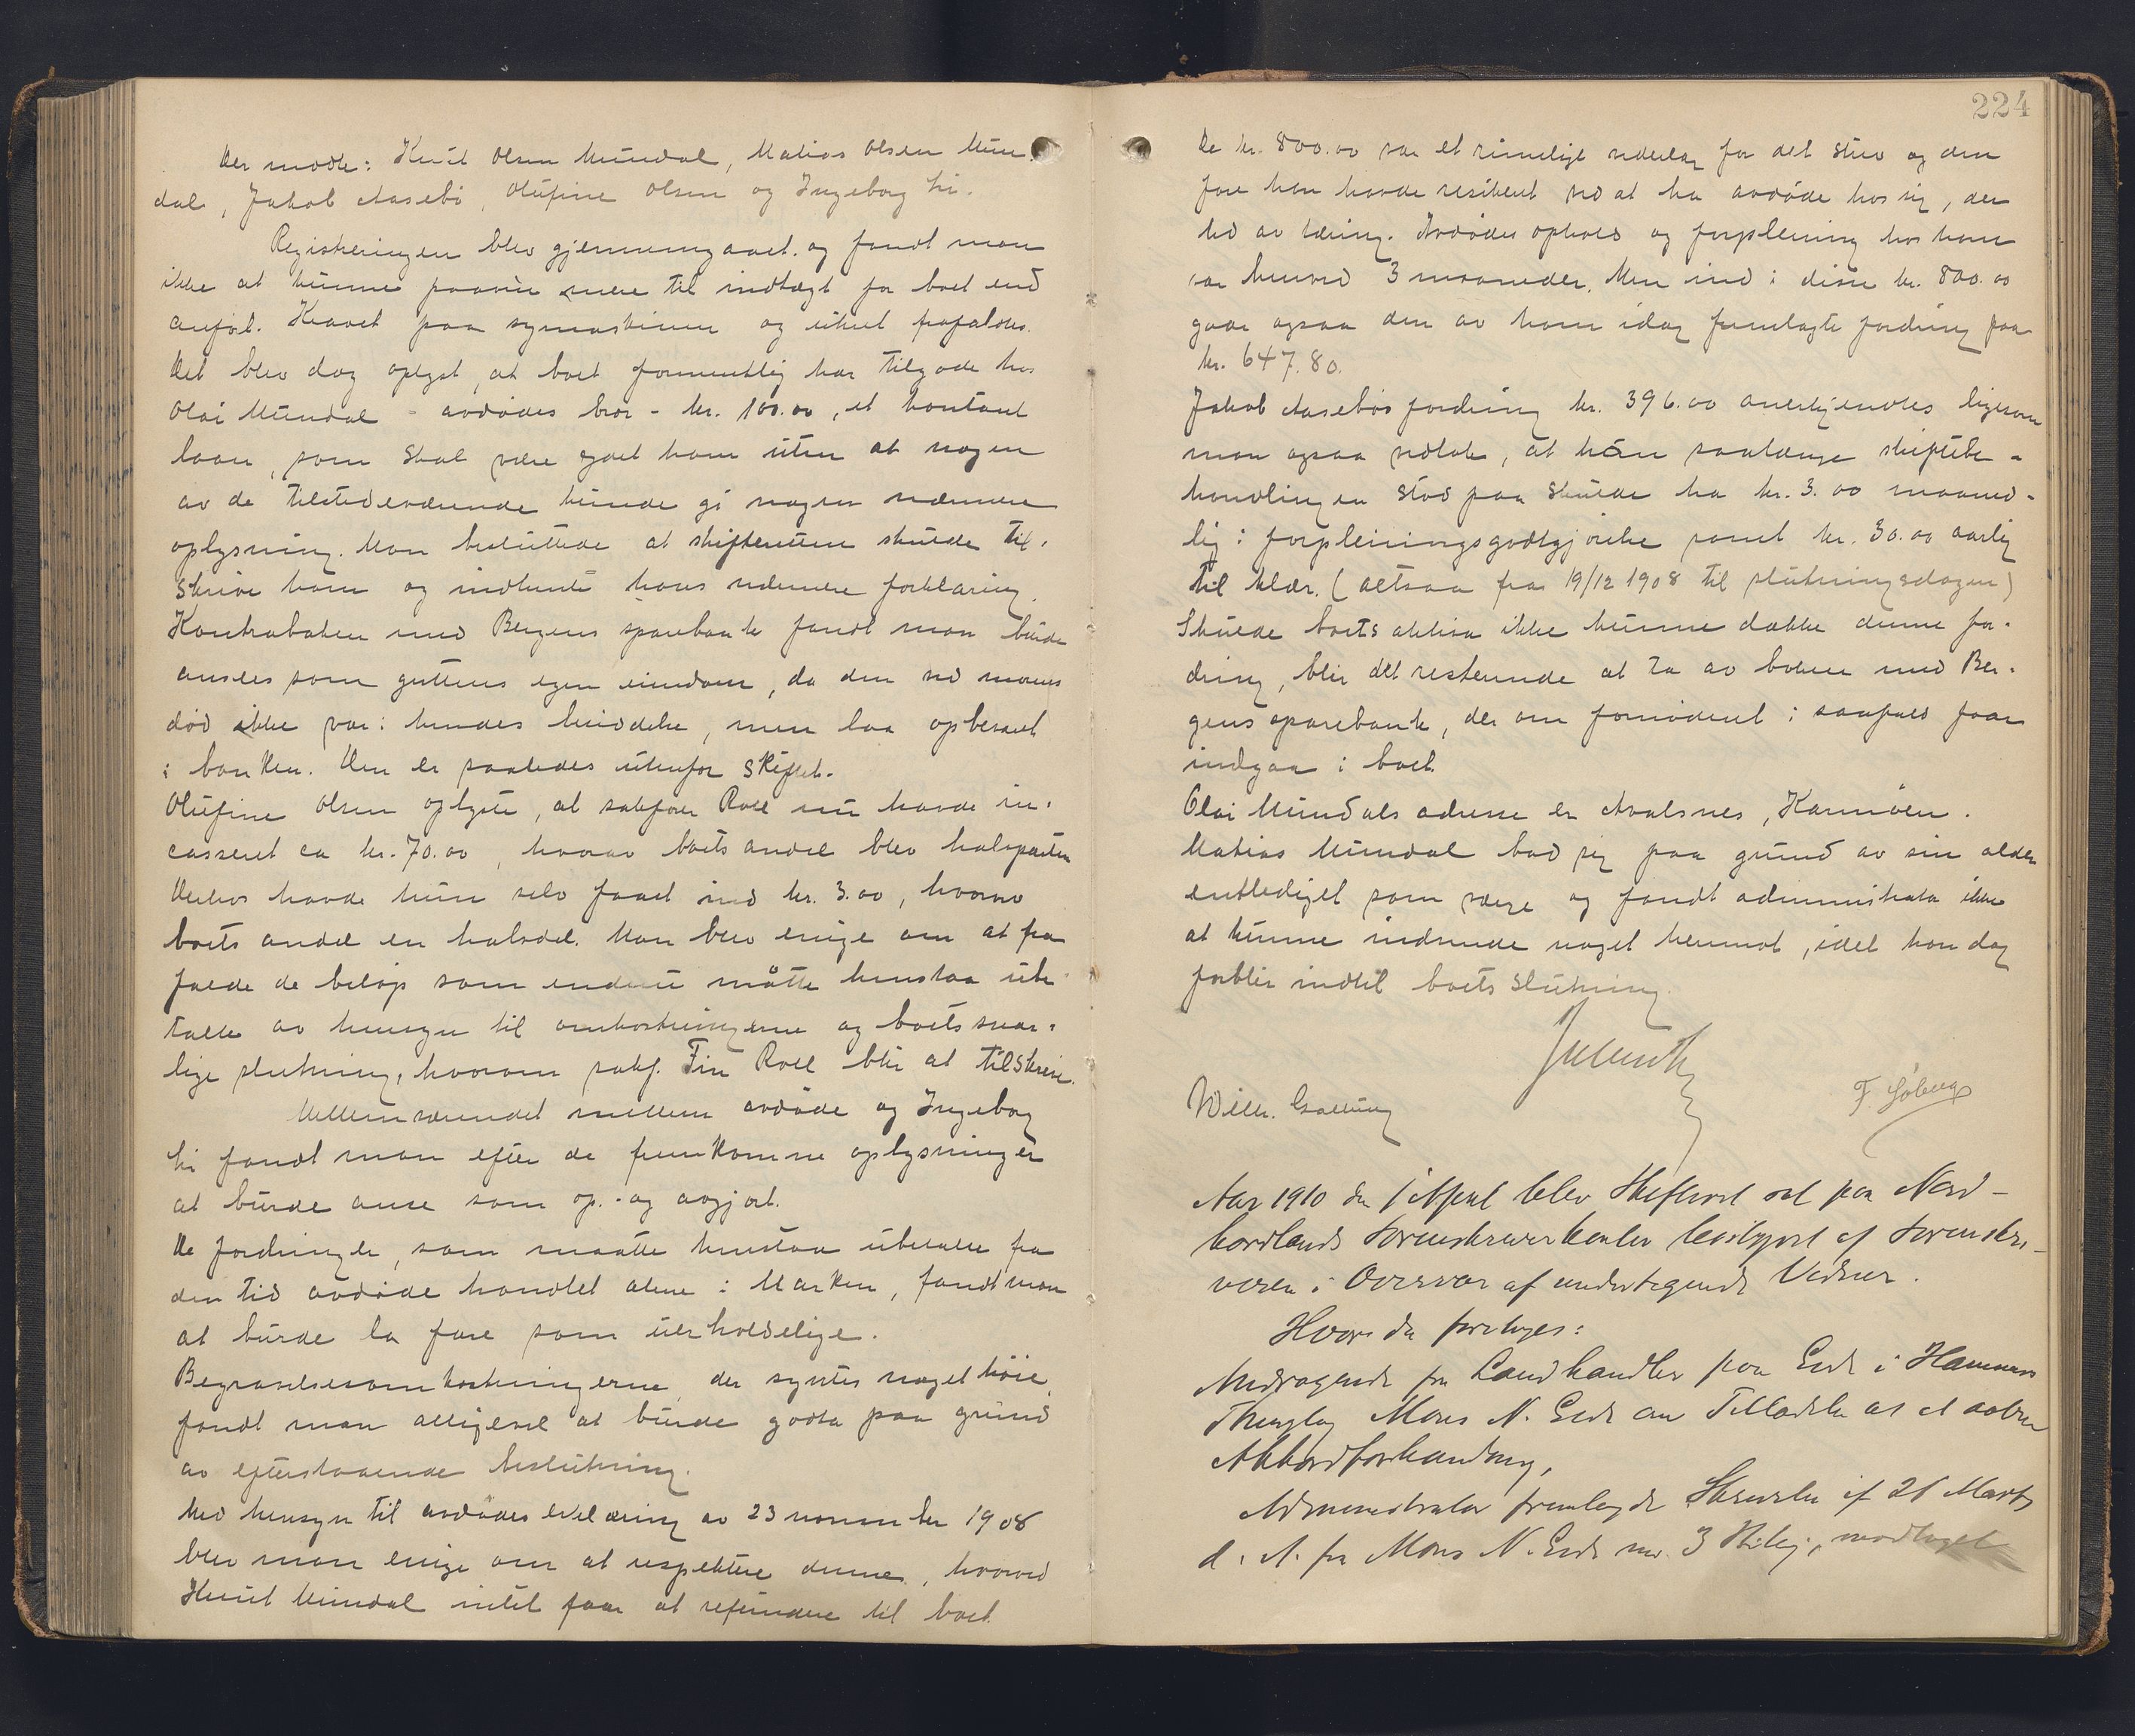 Der mødte: Knut Olsen Mundal, Matias Olsen Mun-
dal, Jakob Aasebø, Olufine Olsen og Ingeborg Li.
Registreringen blev gjennemgaaet og fandt man
ikke at kunne paavise mere til indtægt for boet end
anført. Kravet paa symaskinen og uhret frafaldtes.
Det blev dog oplyst, at boet formentlig har tilgode hos
Olai Mundal - avdødes bror - kr. 100.00, et kontant
laan, som skal være ydet ham uten at nogen
av de tilstedeværende kunde gi nogen nærmere
oplysning. Man besluttede at skifteretten skulde til-
skrive ham og indhente hans nærmere forklaring.
Kontrabøken med Bergens sparebank fandt man burde
ansees som guttens egen eiendom, da den ved morens
død ikke var i hendes besiddelse, men laa opbevaret
i banken. Den er saaledes utenfor skiftet.
Olufine Olsen oplyste, at sakfører Roll nu havde in-
casseret ca kr. 70.00, hvorav boets andel blev halvparten
Derhos havde hun selv faaet ind kr. 3.00, hvorav
boets andel en halvdel. Man blev enige om at fra
falde de beløp som endnu måtte henstaa ube-
talte av hensyn til omkostningerne og boets snar-
lige slutning, hvorom sakf. Finn Roll blir at tilskrive.
Mellemværendet mellem avdøde og Ingeborg
Li fandt man efter de fremkomne oplysninger
at burde anse som op- og avgjort.
De fordringer, som maatte henstaa ubetalte fra
den tid avdøde handlet alene i Marken, fandt man
at burde la fare som uerholdelige.
Begravelsesomkostningerne, der syntes noget høie,
fandt man alligevel at burde godta paa grund
av efterstaaende beslutning.
Med hensyn til avdødes erklæring av 23 november 1908
blev man enige om at respektere denne, hvorved
Knut Mundal intet faar at refundere til boet
224
De kr. 800.00 var et rimelige vederlag for det stræv og den
fare han havde resikeret ved at ha avdøde hos sig, der
led av tæring. Avdødes ophold og forpleining hos ham
var henved 3 maaneder. Men ind i disse kr. 800.00
gaar ogsaa den av ham idag fremlagte fordring paa
kr. 647.80.
Jakob Aasebøs fordring kr. 396.00 anerkjendtes ligesom
man ogsaa vedtok, at han saalænge skiftebe-
handlingen stod paa skulde ha kr. 3.00 maaned-
lig i forpleiningsgodtgjørelse samt kr. 30.00 aarlig
til klær. (altsaa fra 19/12 1908 til slutningsdagen)
Skulde boets aktiva ikke kunne dække denne for-
dring, blir det resterende at ta av boken med Ber-
gens sparebank, der om fornødent i saafald faar
indgaa i boet.
Olai Mundals adresse er Avalsnes, Karmøen.
Matias Mundal bad sig paa grund av sin alder
entlediget som værge og fandt administrator ikke
at kunne indvende noget herimot, idet han dog
forblir indtil boets slutning.
Willr. F. Søberg
Aar 1910 den 1 April blev Skifteret sat paa Nord-
hordlands Sorenskriverkontor bestyret af Sorenskri-
veren i Overvær af undertegnede Vidner.
Hvor da foretoges:
Andragende fra Landhandler paa Eide i Hammers
Thinglag Mons N. Eide om Tilladelse at et aaben
Akkordforhandling,
Administrator fremlagde Skrivelse af 21 Marts
d. A. fra Mons N. Eide med 3 Bilag, modtaget